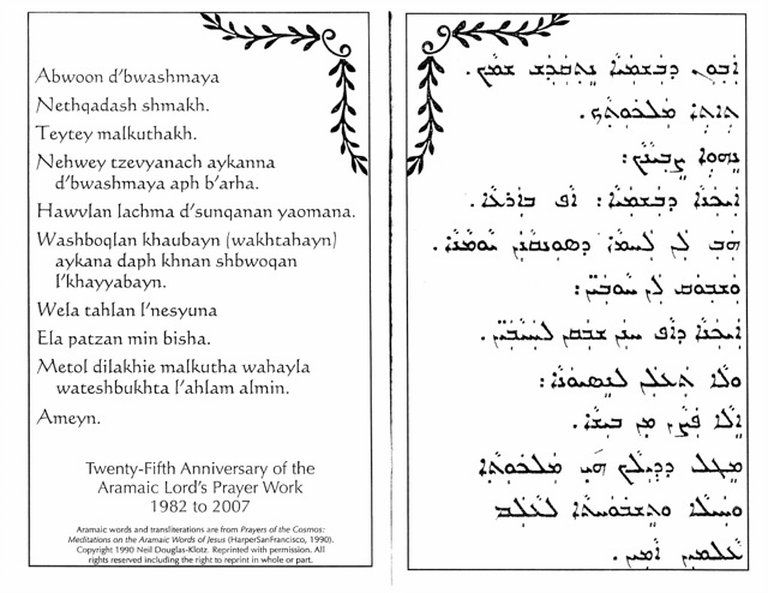 Abwoon d’bwashmaya
Nethqadash shmakh.
Teytey malkuthakh.
Nehwey tzevyanach aykanna
d’bwashmaya aph b’arha.
Hawvlan lachma d’sunqanan yaomana.
Washboqlan khaubayn (wakhtahayn)
aykana daph khnan shbwoqan
l’khayyabayn.
Wela tahlan l’nesyuna
Ela patzan min bisha.
Metol dilakhie malkutha wahayla
wateshbukhta l’ahlam almin.
Ameyn.
Twenty-Fifth Anniversary of the
Aramaic Lord’s Prayer Work
1982 to 2007
Aramaic words and transliterations are from Prayers of the Cosmos:
Meditations on the Aramaic Words of Jesus (HarperSanFrancisco, 1990).
Copyright 1990 Neil Douglas-Klotz. Reprinted with permission. All
rights reserved including the right to reprint in whole or part.
ܐܒܘܢ ܕܒܫܡܝܐ ܢܬܩܕܫ ܫܡܟ.
ܬܐܬܐ ܡܠܟܘܬܟ.
ܢܗܘܐ ܨܒܝܢܟ:
ܐܝܟܢܐ ܕܒܫܡܝܐ: ܐܦ ܒܐܪܥܐ.
ܗܒ ܠܢ ܠܚܡܐ ܕܣܘܢܩܢܢ ܝܘܡܢܐ.
ܘܫܒܘܩ ܠܢ ܚܘܒܝ̈ܢ:
ܐܝܟܢܐ ܕܐܦ ܚܢܢ ܫܒܩܢ ܠܚܝܒܝ̈ܢ.
ܘܠܐ ܬܥܠܢ ܠܢܣܝܘܢܐ:
ܐܠܐ ܦܨܢ ܡܢ ܒܝܫܐ.
ܡܛܠ ܕܕܝܠܟ ܗܝ ܡܠܟܘܬܐ
ܘܚܝܠܐ ܘܬܫܒܘܚܬܐ ܠܥܠܡ
ܥܠܡܝܢ ܐܡܝܢ.